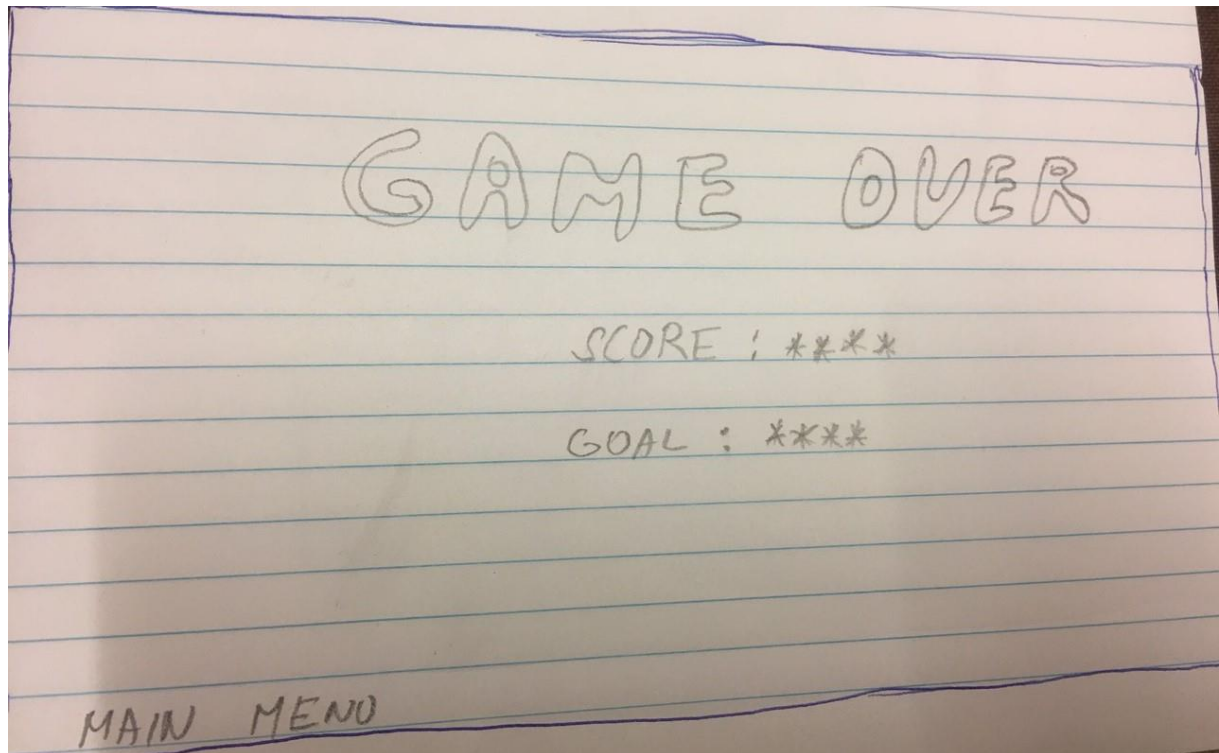 GAME OVER
SCORE : ****
GOAL : ****
MAIN MENU